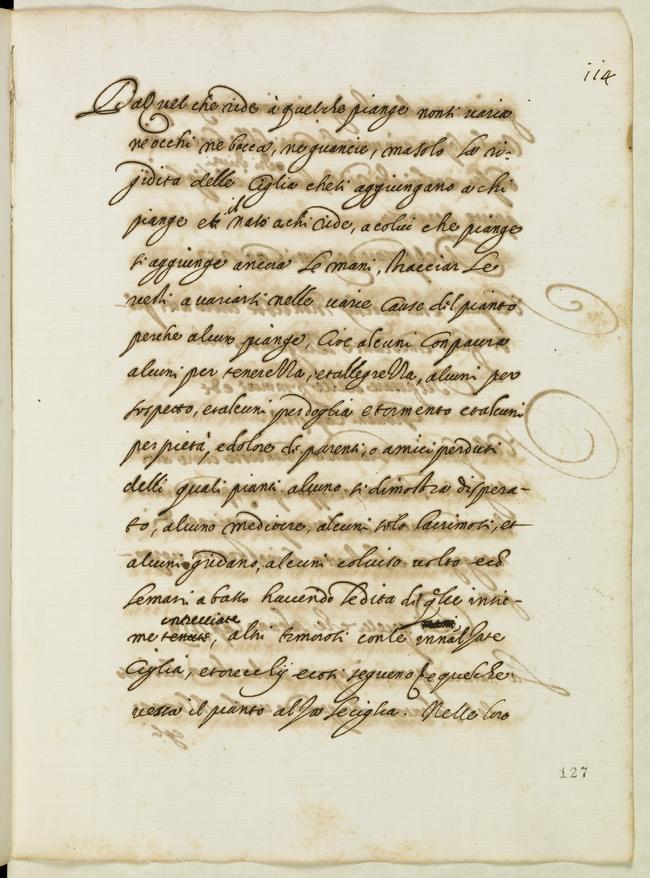 114
Dal quel che ride à quel che piange non ti varia
ne occhi ne bocca, ne guancie, ma solo la ri-
gidita delle Ciglia che ti aggiungano a chi
piange et il nato a chi ride, a colui che piange
si aggiunge ancora le mani, stracciar le
vesti, a variarsi nelle varie cause dil pianto
perche alcuno piange, Cioe alcuni con paura
alcuni per tenerella, et allegrella, alcuni per
sospetto, et alcuni per doglia e tormento et alcuni
per pietà, e dolore di parenti, o amici perduti
delli quali pianti alcuno si dimostra dispera-
to, alcuno mediocre, alcuni solo lacrimosi, et
alcuni gridano, alcuni col viso volto et
le mani a basso havendo le dita di qlle insie-
me intrecciate, altri timorosi con le innalsate
Ciglia, et orecchij e cosi segueno e quel che
versa il pianto alsa le ciglia. Nelle loro
127